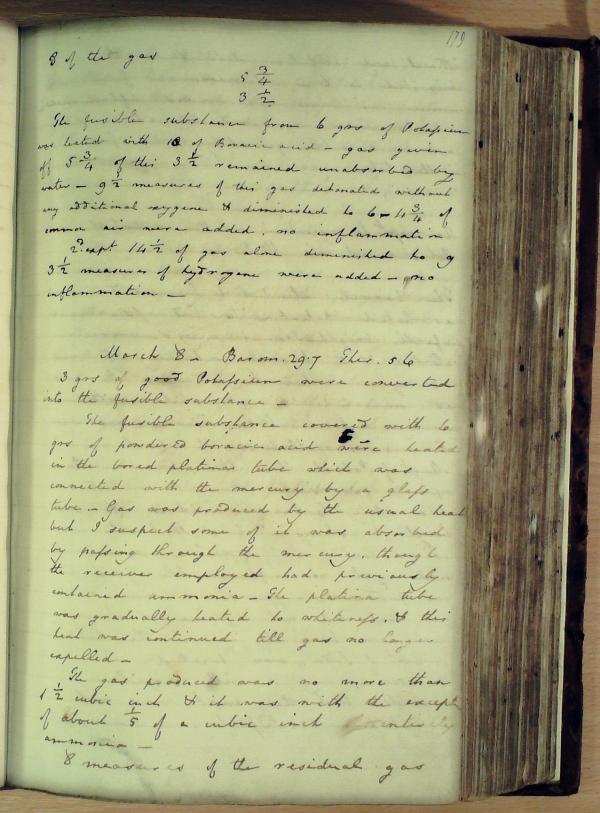 179
8 of the gas
5 3/4
3 1/2
The fusible substance from 6 grs of Potaſsium
was heated with 10 of Boracic acid – gas given
off 5 3/4 of this 3 1/2 remained unabsorbed by
water – 9 1/2 measures of this gas detonated without
any additional oxygene & diminished to 6 – 4 3/4 of
common air were added, no inflammation
2d. expt. 14 1/2 of gas alone diminished to 9
3 1/2 measures of hydrogene were added – no
inflammation –
March 8 – Barom. 29.7 Ther. 56
3 grs of good Potaſsium were converted
into the fusible substance –
The fusible substance covered with 6
grs of powdered boracic acid were heated
in the bored platina tube which was
connected with the mercury by a glaſs
tube – Gas was produced by the usual heat
but I suspect some of it was absorbed
by paſsing through the mercury, though
the receiver employed had previously
contained ammonia – The platina tube
was gradually heated to whiteneſs, & this
heat was continued till gas no longer
expelled –
The gas produced was no more than
1 1/2 cubic inch & it was with the except
of about 1/5 of a cubic inch entirely
ammonia –
8 measures of the residual gas